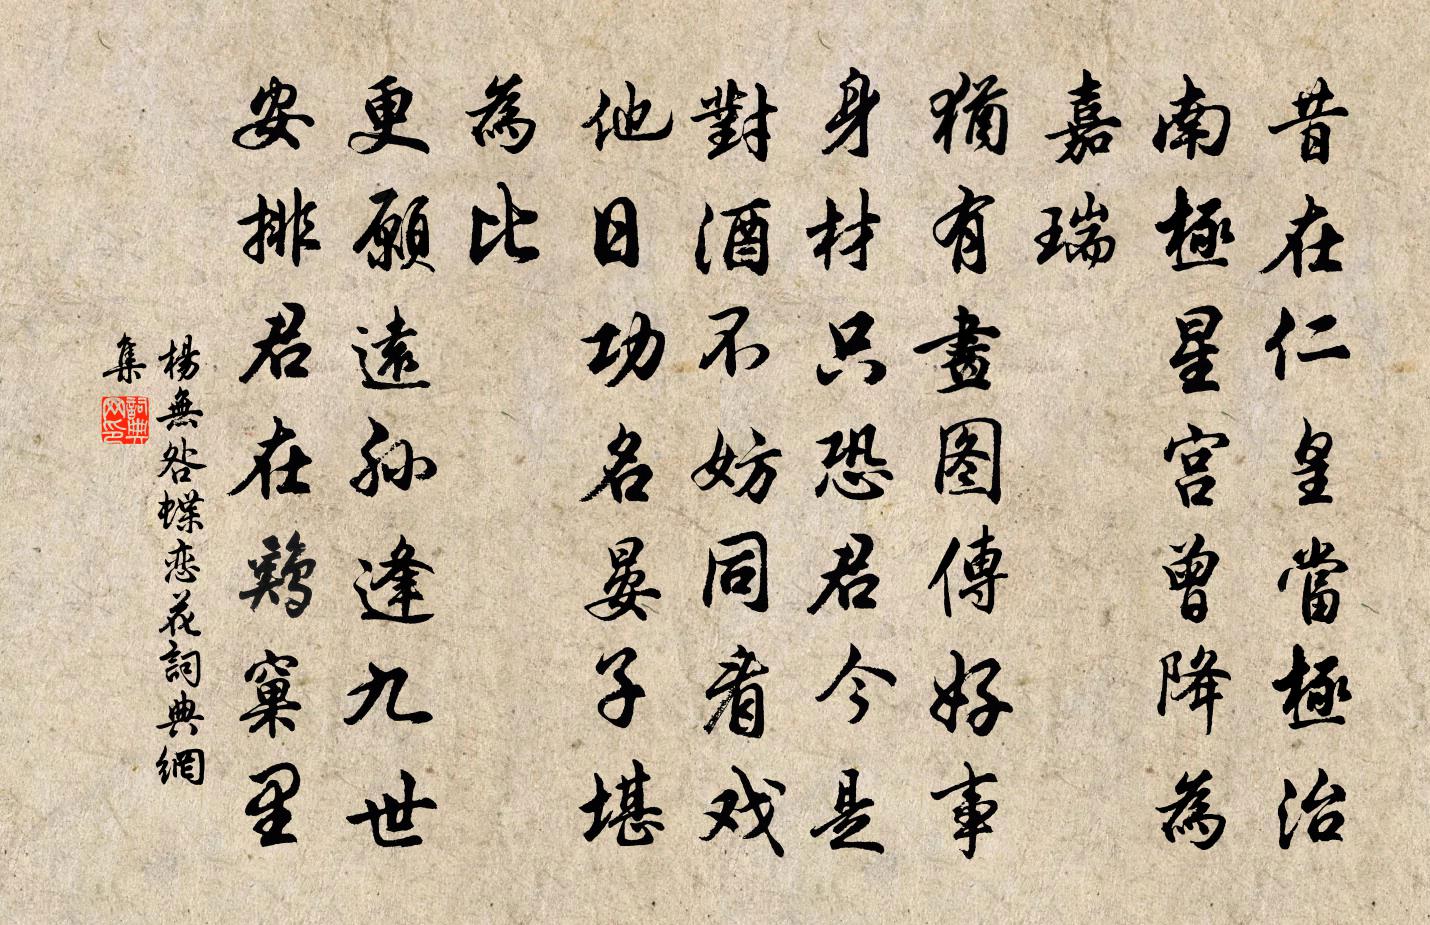 昔在仁皇當極治
南極星宮曾降為
嘉瑞
猶有畫图傳好事
身材只恐君今是
對酒不妨同看戏
他日功名晏子堪
為比
更願遠孙逢九世
安排君在鷄窠里
楊無咎蝶恋花詞典網
集
詞典网印